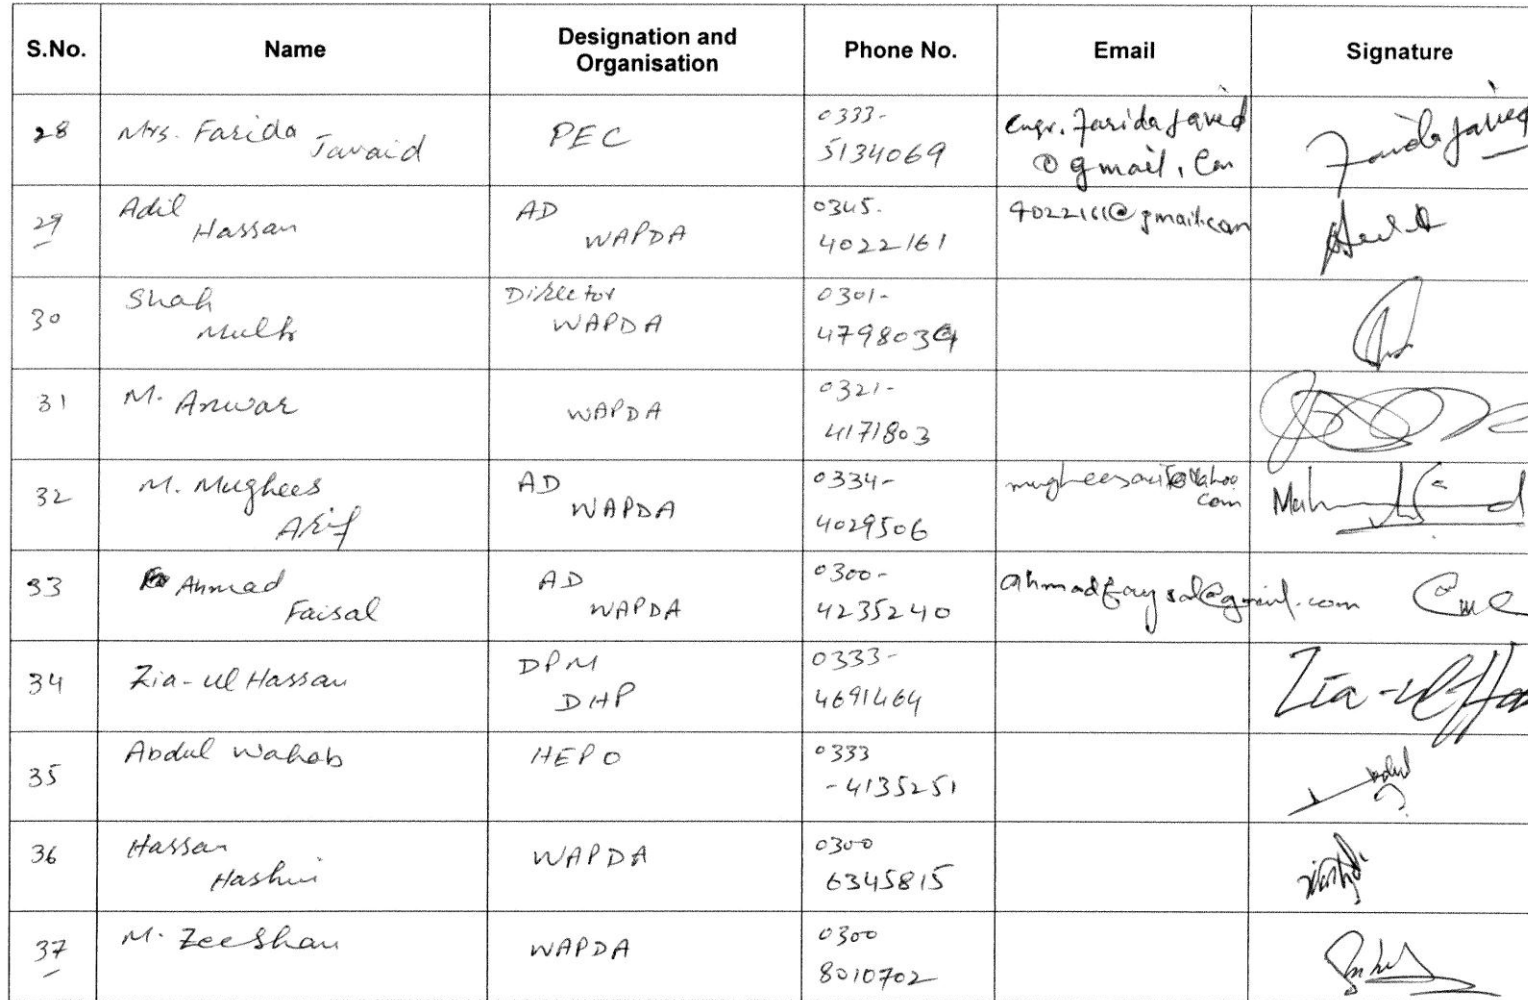 S.No. Name Designation and Organisation Phone No. Email Signature
28 Mrs. Farida Javaid PEC 0333-5134069 engr.faridajaved@gmail.com Farida Javed
29 Adil Hassan AD WAPDA 0345-4022161 4022161@gmail.com
30 Shah Mulk Director WAPDA 0301-
31 M. Anwar WAPDA 0321-4171803
32 M. Mughees Arif AD WAPDA 0334-4029506
33 Ahmad Faisal AD WAPDA 0300-4235240 ahmadfaysal@gmail.com
34 Zia-ul Hassan DPM DHP 0333-4691464 Zia-ul-Has
35 Abdul Wahab HEPO 0333-4135251
36 Hassan Hashmi WAPDA 0300 6345815
37 M. Zeeshan WAPDA 0300 8010702